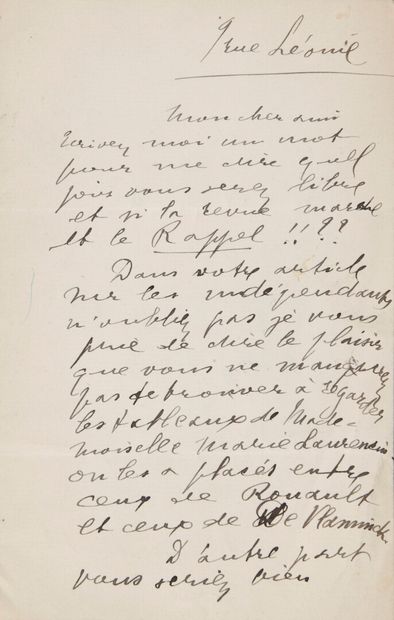 9 rue Léonie
Mon cher ami
Ecrivez moi un mot
pour me dire quel
jour vous serez libre
et si la revue marche
et le Rappel !!??
Dans votre article
sur les indépendants
n'oubliez pas je vous
prie de dire le plaisir
que vous ne manquerez
pas de trouver à regarder
les tableaux de Made-
moiselle Marie Laurencin
on les a placés entre
ceux de Rouault
et ceux de De Vlaminck
D'autre part
vous seriez bien